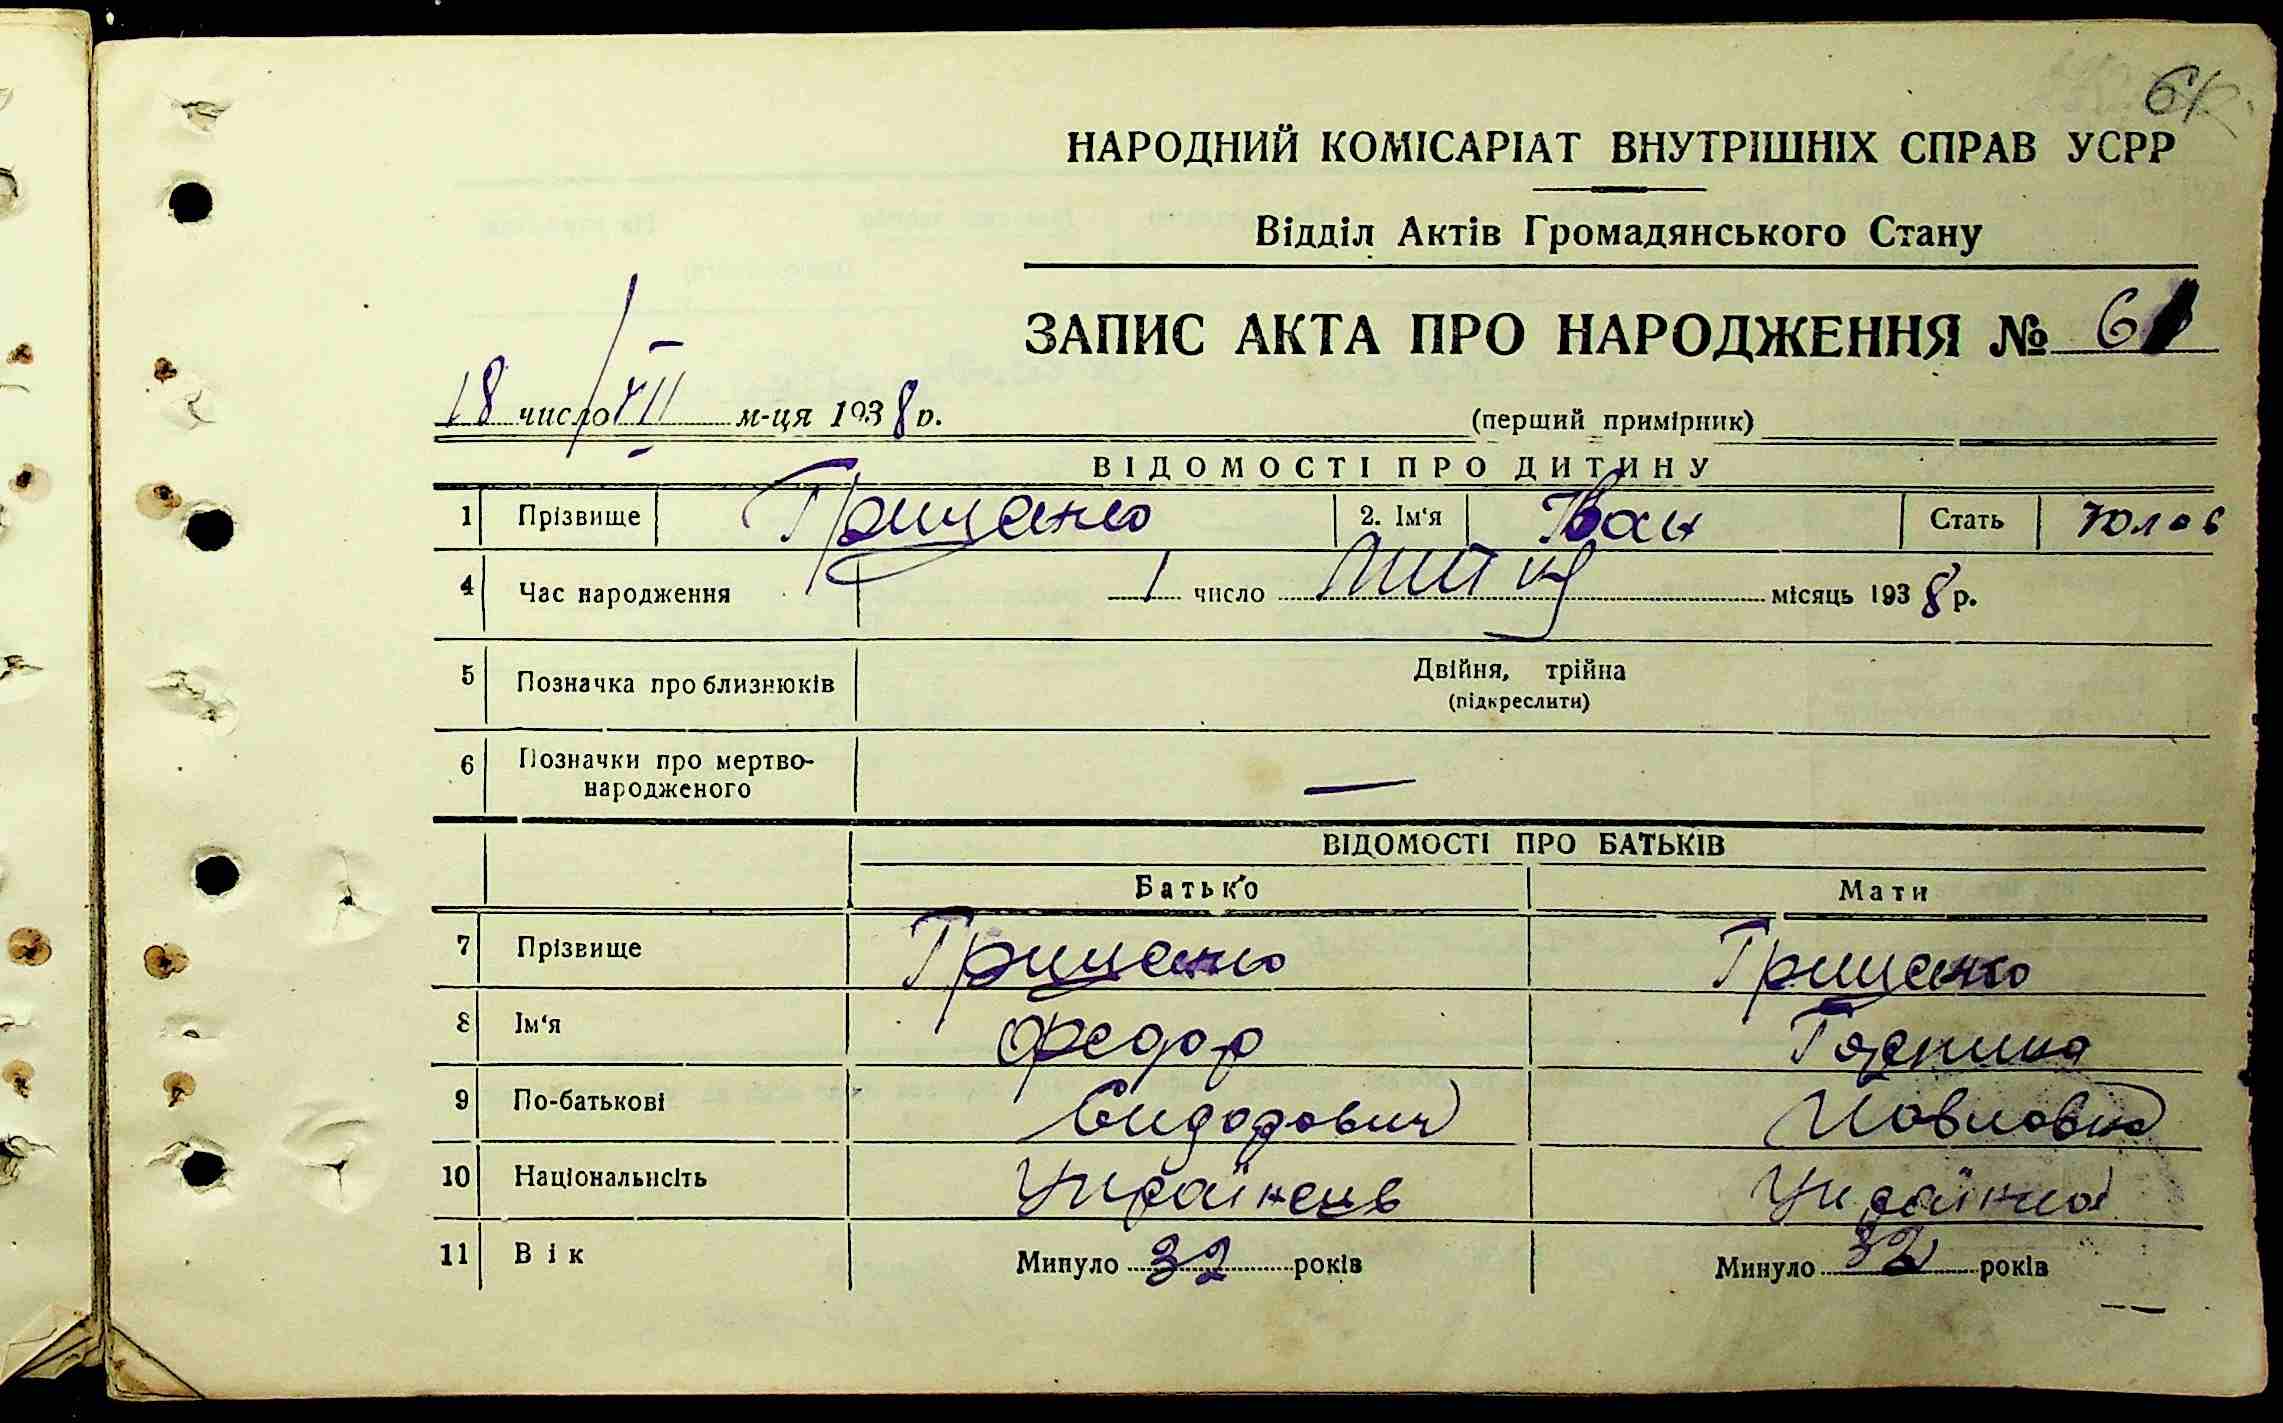 61
НАРОДНИЙ КОМІСАРІАТ ВНУТРІШНІХ СПРАВ УСРР
Відділ Актів Громадянського Стану
ЗАПИС АКТА ПРО НАРОДЖЕННЯ № 61
18 число VII м-ця 1938 р.
(перший примірник)
ВІДОМОСТІ ПРО ДИТИНУ
1 Прізвище Грищенко 2. Ім'я Іван Стать
4 Час народження 1 число місяць 1938 р.
5 Позначка про близнюків Двійня, трійна
(підкреслити)
6 Позначки про мертво-
народженого —
ВІДОМОСТІ ПРО БАТЬКІВ
Батько Мати
7 Прізвище Грищенко Грищенко
8 Ім'я Федор
9 По-батькові Сидорович Павловна
10 Національність Українець Українка
11 Вік Минуло 32 років Минуло 32 років